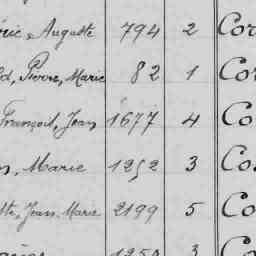 Auguste 794 2 Cor
Pierre, Marie 82 1 Co
François, Jean 1677 4 Co
Marie 1252 3 Co
Jean Marie 2199 5 Co
1259 3 Co